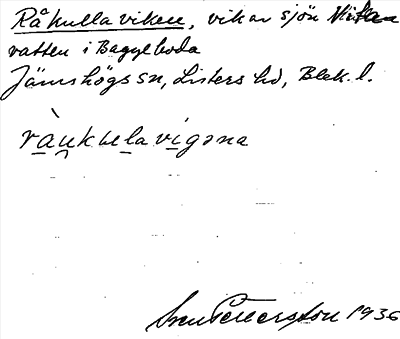 Råkullaviken, vikar sjön
vatten i Bagylboda
Jämshögs sn, Listers hd, Blek. l.
ràu̯kuelavigəna
Sven Pettersson 1936